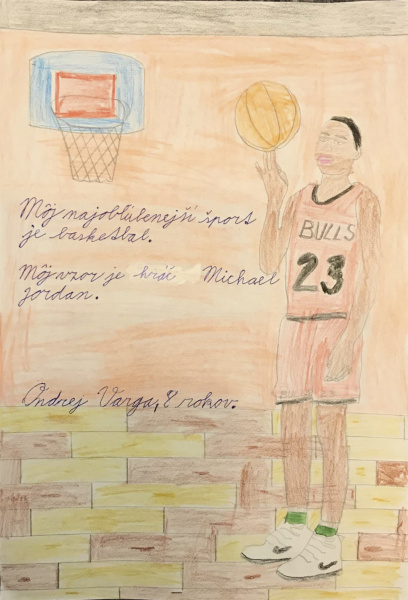 Môj najobľúbenejší šport
je basketbal.
Môj vzor je hráč Michael
Jordan.
Ondrej Varga, 8 rokov.
BULLS
23